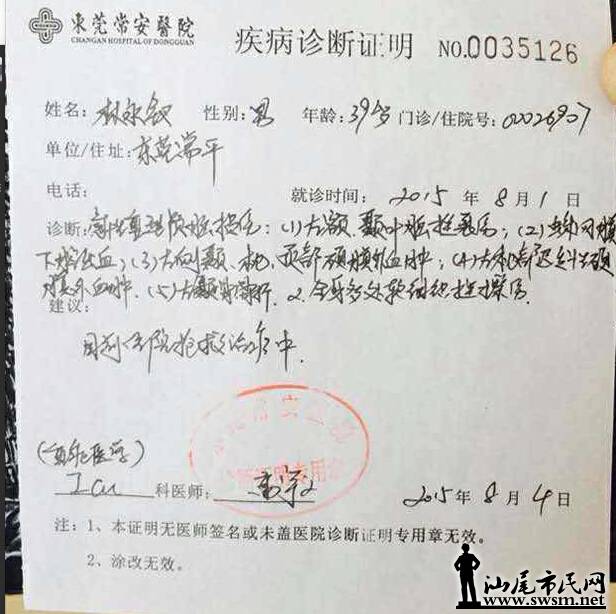 東莞常安醫院
CHANGAN HOSPITAL OF DONGGUAN
疾病诊断证明 NO.0035126
姓名: 林永 性别: 男 年龄: 39岁 门诊/住院号: 00026907
单位/住址: 东莞常平
电话: 就诊时间: 2015 年 8 月 1 日
诊断: 急性重型颅脑损伤: (1) 左额、颞叶脑挫裂伤; (2) 蛛网膜
下腔出血; (3) 左侧颞、枕、顶部硬膜外血肿; (4)
硬膜外血肿. (5) 左颞骨骨折. 2. 全身多处软组织挫擦伤
建议:
目前住院抢救治疗中.
(重症医学)
ICU 科医师: 2015 年 8 月 4 日
诊断证明专用章
注: 1、本证明无医师签名或未盖医院诊断证明专用章无效。
2、涂改无效。
汕尾市民网
www.swsm.net